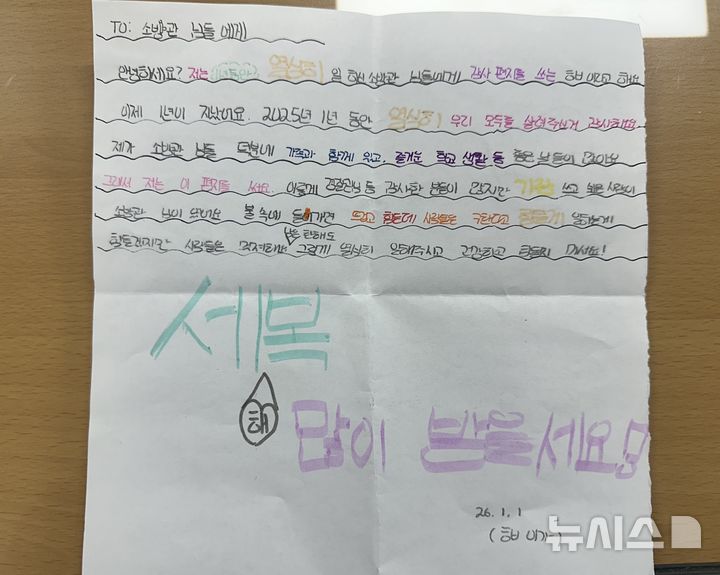 TO: 소방관 님들에게
안녕하세요? 저는 1년동안 열심히 일 하신 소방관 님들에게 감사 편지를 쓰는 라고 해요
이제 1년이 지났어요. 2025년 1년 동안 열심히 우리 모두를 살려주신거 감사해요
제가 소방관 님들 덕분에 가족과 함께 있고, 즐거운 학교 생활 등 좋은 날들이 많아요
그래서 저는 이 편지를 써요. 이렇게 경찰관님 등 감사한 분들이 많지만 가장 쓰고 싶은 사람이
소방관 님이 였어요 불 속에 들어가면 뜨겁고 힘든데 사람들은 구한다고 힘들게
힘들겠지만 사람들은 그렇게 열심히 일해주시고 건강하고 다치지 마세요!
세복
해
많이 받을세요
26. 1. 1
뉴시스